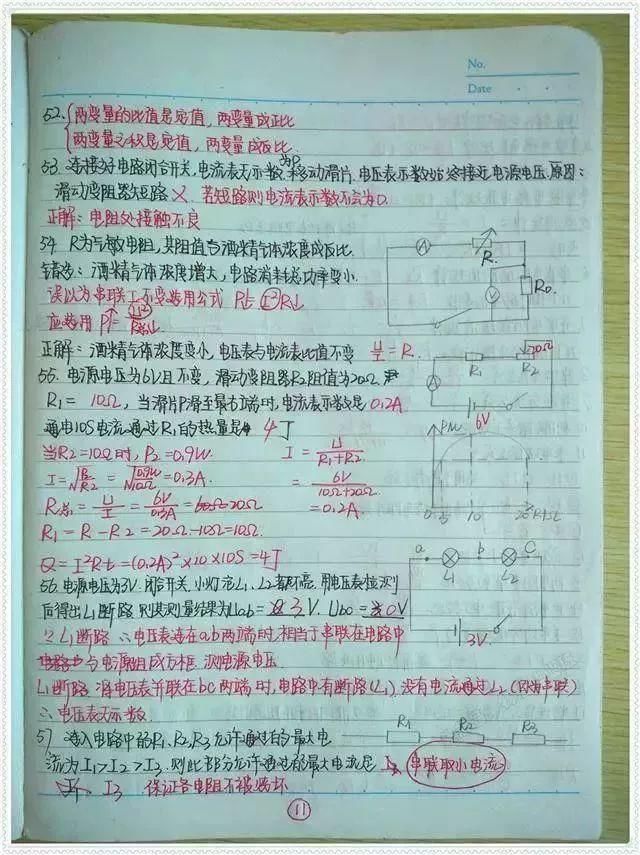 No.
Date
52. 两变量的比值是定值，两变量成正比
两变量之积是定值，两变量成反比.
53. 连接好电路闭合开关，电流表无示数，移动滑片P，电压表示数始终接近电源电压.原因：
滑动变阻器短路 × 若短路则电流表示数不会为0.
正解：电阻处接触不良
54. R为气敏电阻，其阻值与酒精气体浓度成反比.
错选：酒精气体浓度增大，电路消耗总功率变小.
误以为串联I不变选用公式 P总=I²R总
应选用 P总=U²/R总
正解：酒精气体浓度变小，电压表与电流表比值不变 U/I=R.
55. 电源电压为6V且不变，滑动变阻器R2阻值为20Ω
R1= 10Ω，当滑片P滑至最右端时，电流表示数是0.2A
通电10S电流通过R1的热量是 4J
当R2=10Ω时，P2=0.9W.
I=√P2/R2=√0.9W/10Ω=0.3A.
R总=U/I=6V/0.3A=20Ω
R1=R-R2=20Ω-10Ω=10Ω.
Q=I²Rt=(0.2A)²×10×10S=4J
I=U/R1+R2
=6V/10Ω+20Ω
=0.2A.
56. 电源电压为3V.闭合开关.小灯泡L1.L2都不亮.用电压表检测
后得出L1断路.则其测量结果为Uab=3V. Ubc=0V
∵L1断路 ∴电压表连在ab两端时，相当于串联在电路中
与电源组成方框.测电源电压.
L1断路.当电压表并联在bc两端时，电路中有断路(L1).没有电流通过L2
∴电压表无示数.
57. 连入电路中的R1、R2、R3允许通过的最大电
流为I1>I2>I3.则此部分允许通过的最大电流是 串联取小电流
I3 保证各电阻不被烧坏
A
R
V
R0
A
R1
R2
20Ω
6V
P/W
0
5
10
20
R/Ω
a
b
C
L1
L2
3V
R1
R2
R3
11